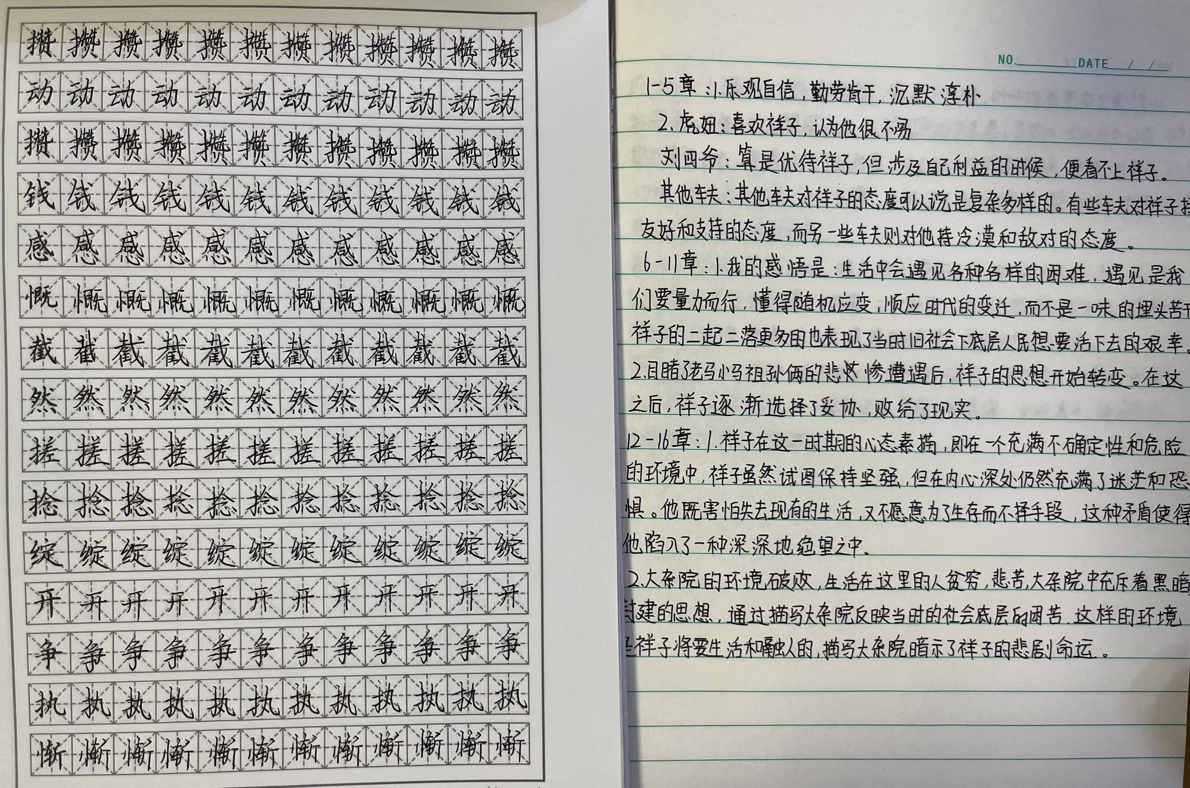 攒攒攒攒攒攒攒攒攒攒攒攒
动动动动动动动动动动动动
攒攒攒攒攒攒攒攒攒攒攒攒
钱钱钱钱钱钱钱钱钱钱钱钱
感感感感感感感感感感感感
慨慨慨慨慨慨慨慨慨慨慨慨
截截截截截截截截截截截截
然然然然然然然然然然然然
搓搓搓搓搓搓搓搓搓搓搓搓
捻捻捻捻捻捻捻捻捻捻捻捻
绽绽绽绽绽绽绽绽绽绽绽绽
开开开开开开开开开开开开
争争争争争争争争争争争争
执执执执执执执执执执执执
惭惭惭惭惭惭惭惭惭惭惭惭
NO. DATE / /
1-5章:1.乐观自信,勤劳肯干,沉默淳朴
2.虎妞:喜欢祥子,认为他很不易
刘四爷:算是优待祥子,但涉及自己利益的时候,便看不上祥子。
其他车夫:其他车夫对祥子的态度可以说是复杂多样的。有些车夫对祥子持
友好和支持的态度,而另一些车夫则对他持冷漠和敌对的态度。
6-11章:1.我的感悟是:生活中会遇见各种各样的困难,遇见是我
们要量力而行,懂得随机应变,顺应时代的变迁,而不是一味的埋头苦干
祥子的二起二落更多的也表现了当时旧社会下底层人民想要活下去的艰幸。
2.目睹了老马小马祖孙俩的悲惨遭遇后,祥子的思想开始转变。在这
之后,祥子逐渐选择了妥协,败给了现实。
12-16章:1.祥子在这一时期的心态素描,即在一个充满不确定性和危险
的环境中,祥子虽然试图保持坚强,但在内心深处仍然充满了迷茫和恐
惧。他既害怕失去现有的生活,又不愿意为了生存而不择手段,这种矛盾使得
他陷入了一种深深地绝望之中.
2.大杂院的环境破败,生活在这里的人贫穷,悲苦,大杂院中充斥着黑暗
封建的思想,通过描写大杂院反映当时的社会底层的困苦,这样的环境
是祥子将要生活和融入的,描写大杂院暗示了祥子的悲剧命运。